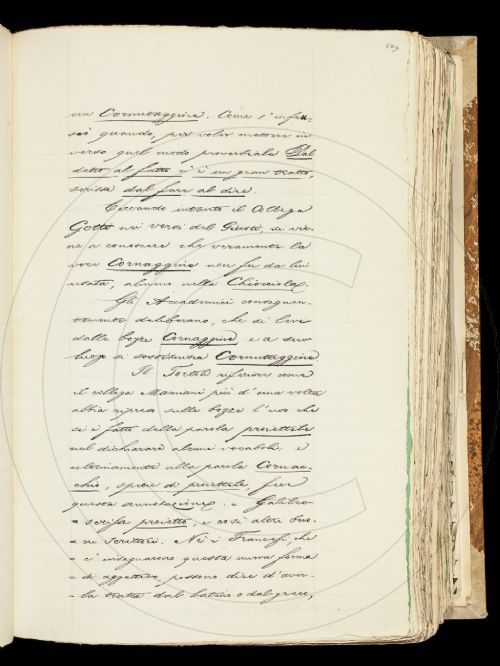 con Cornutaggine. Come s'infra-
scò quando, per voler mettere in
verso quel modo proverbiale Dal
detto al fatto c'è un gran tratto,
scrisse dal fare al dire.
Cercando intanto il Collega
Gotti nei versi del Giusti, si vie-
ne a conoscere che veramente la
voce Cornaggine non fu da lui
usata, almeno nella Chiocciola.
Gli Accademici conseguen-
temente deliberano, che si levi
dalle bozze Cornaggine, e a suo
luogo si sostituisca Cornutaggine
Il Tortoli riferisce come
il collega Mamiani più d'una volta
abbia ripreso sulle bozze l'uso che
si è fatto della parola proiettile
nel dichiarare alcuni vocaboli: e
ultimamente alla parola Cornac-
chio, specie di proiettile, fece
questa annotazione. = Galileo
= scrisse proietto, e così altri buo-
= ni scrittori. Nè i Francesi, che
= c'insegnarono questa nuova forma
= di aggettivo, possono dire d'aver-
= la tratta dal latino o dal greco,